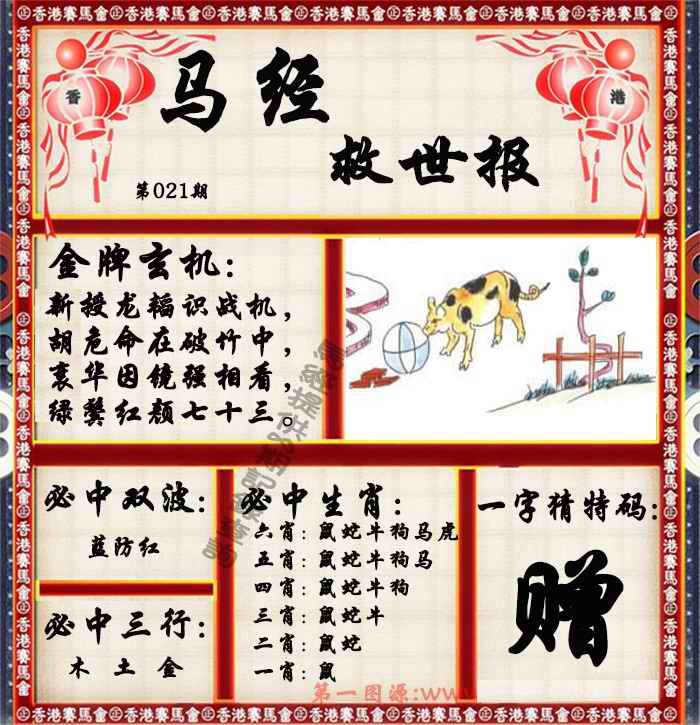 香港賽馬會
香
港
马经
救世报
第021期
金牌玄机:
新授龙韬识战机，
胡危命在破竹中，
衰华因镜强相看，
绿鬓红颜七十三。
必中双波:
蓝防红
必中三行:
木 土 金
必中生肖:
六肖: 鼠蛇牛狗马虎
五肖: 鼠蛇牛狗马
四肖: 鼠蛇牛狗
三肖: 鼠蛇牛
二肖: 鼠蛇
一肖: 鼠
一字猜特码:
赠
第一图源:www